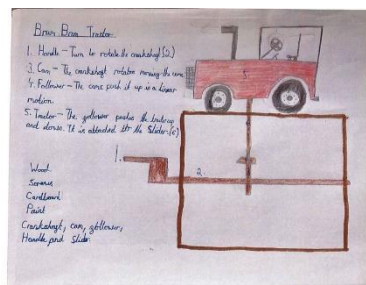 Brum Brum Tractor.
1. Handle - Turn to rotate the crankshaft (2.)
3. Cam - The crankshaft rotates moving the cam.
4. Follower - The cams push it up in a linear
motion.
5. Tractor - The follower pushes the tractor up
and down. It is attached to the slider. (6)
1.
2.
5
Wood
Screws
Cardboard
Paint
Crankshaft, cam, follower,
Handle and slider.